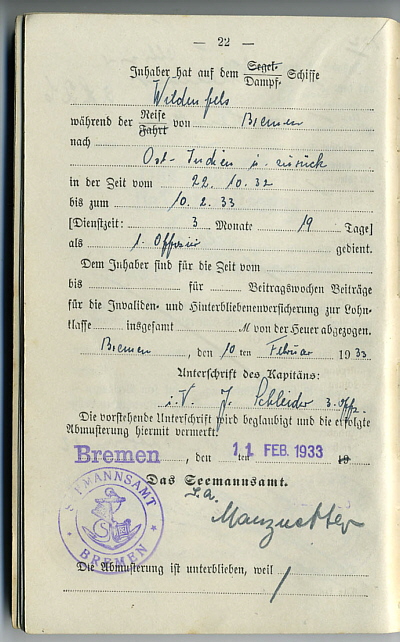 — 22 —
Inhaber hat auf dem Segel- Dampf- Schiffe
Wildenfels
während der Reise Fahrt von Bremen
nach
Ost-Indien u. zurück
in der Zeit vom 22. 10. 32
bis zum 10. 2. 33
[Dienstzeit: 3 Monate 19 Tage]
als 1. Offizier gedient.
Dem Inhaber sind für die Zeit vom
bis für Beitragswochen Beiträge
für die Invaliden- und Hinterbliebenenversicherung zur Lohn-
klasse insgesamt M von der Heuer abgezogen.
Bremen, den 10 ten Februar 1933
Unterschrift des Kapitäns:
i.V. J. Schleider 3. Offz.
Die vorstehende Unterschrift wird beglaubigt und die erfolgte
Abmusterung hiermit vermerkt.
Bremen, den ten 11. FEB. 1933 19
Das Seemannsamt.
SEEMANNSAMT
BREMEN
Die Abmusterung ist unterblieben, weil